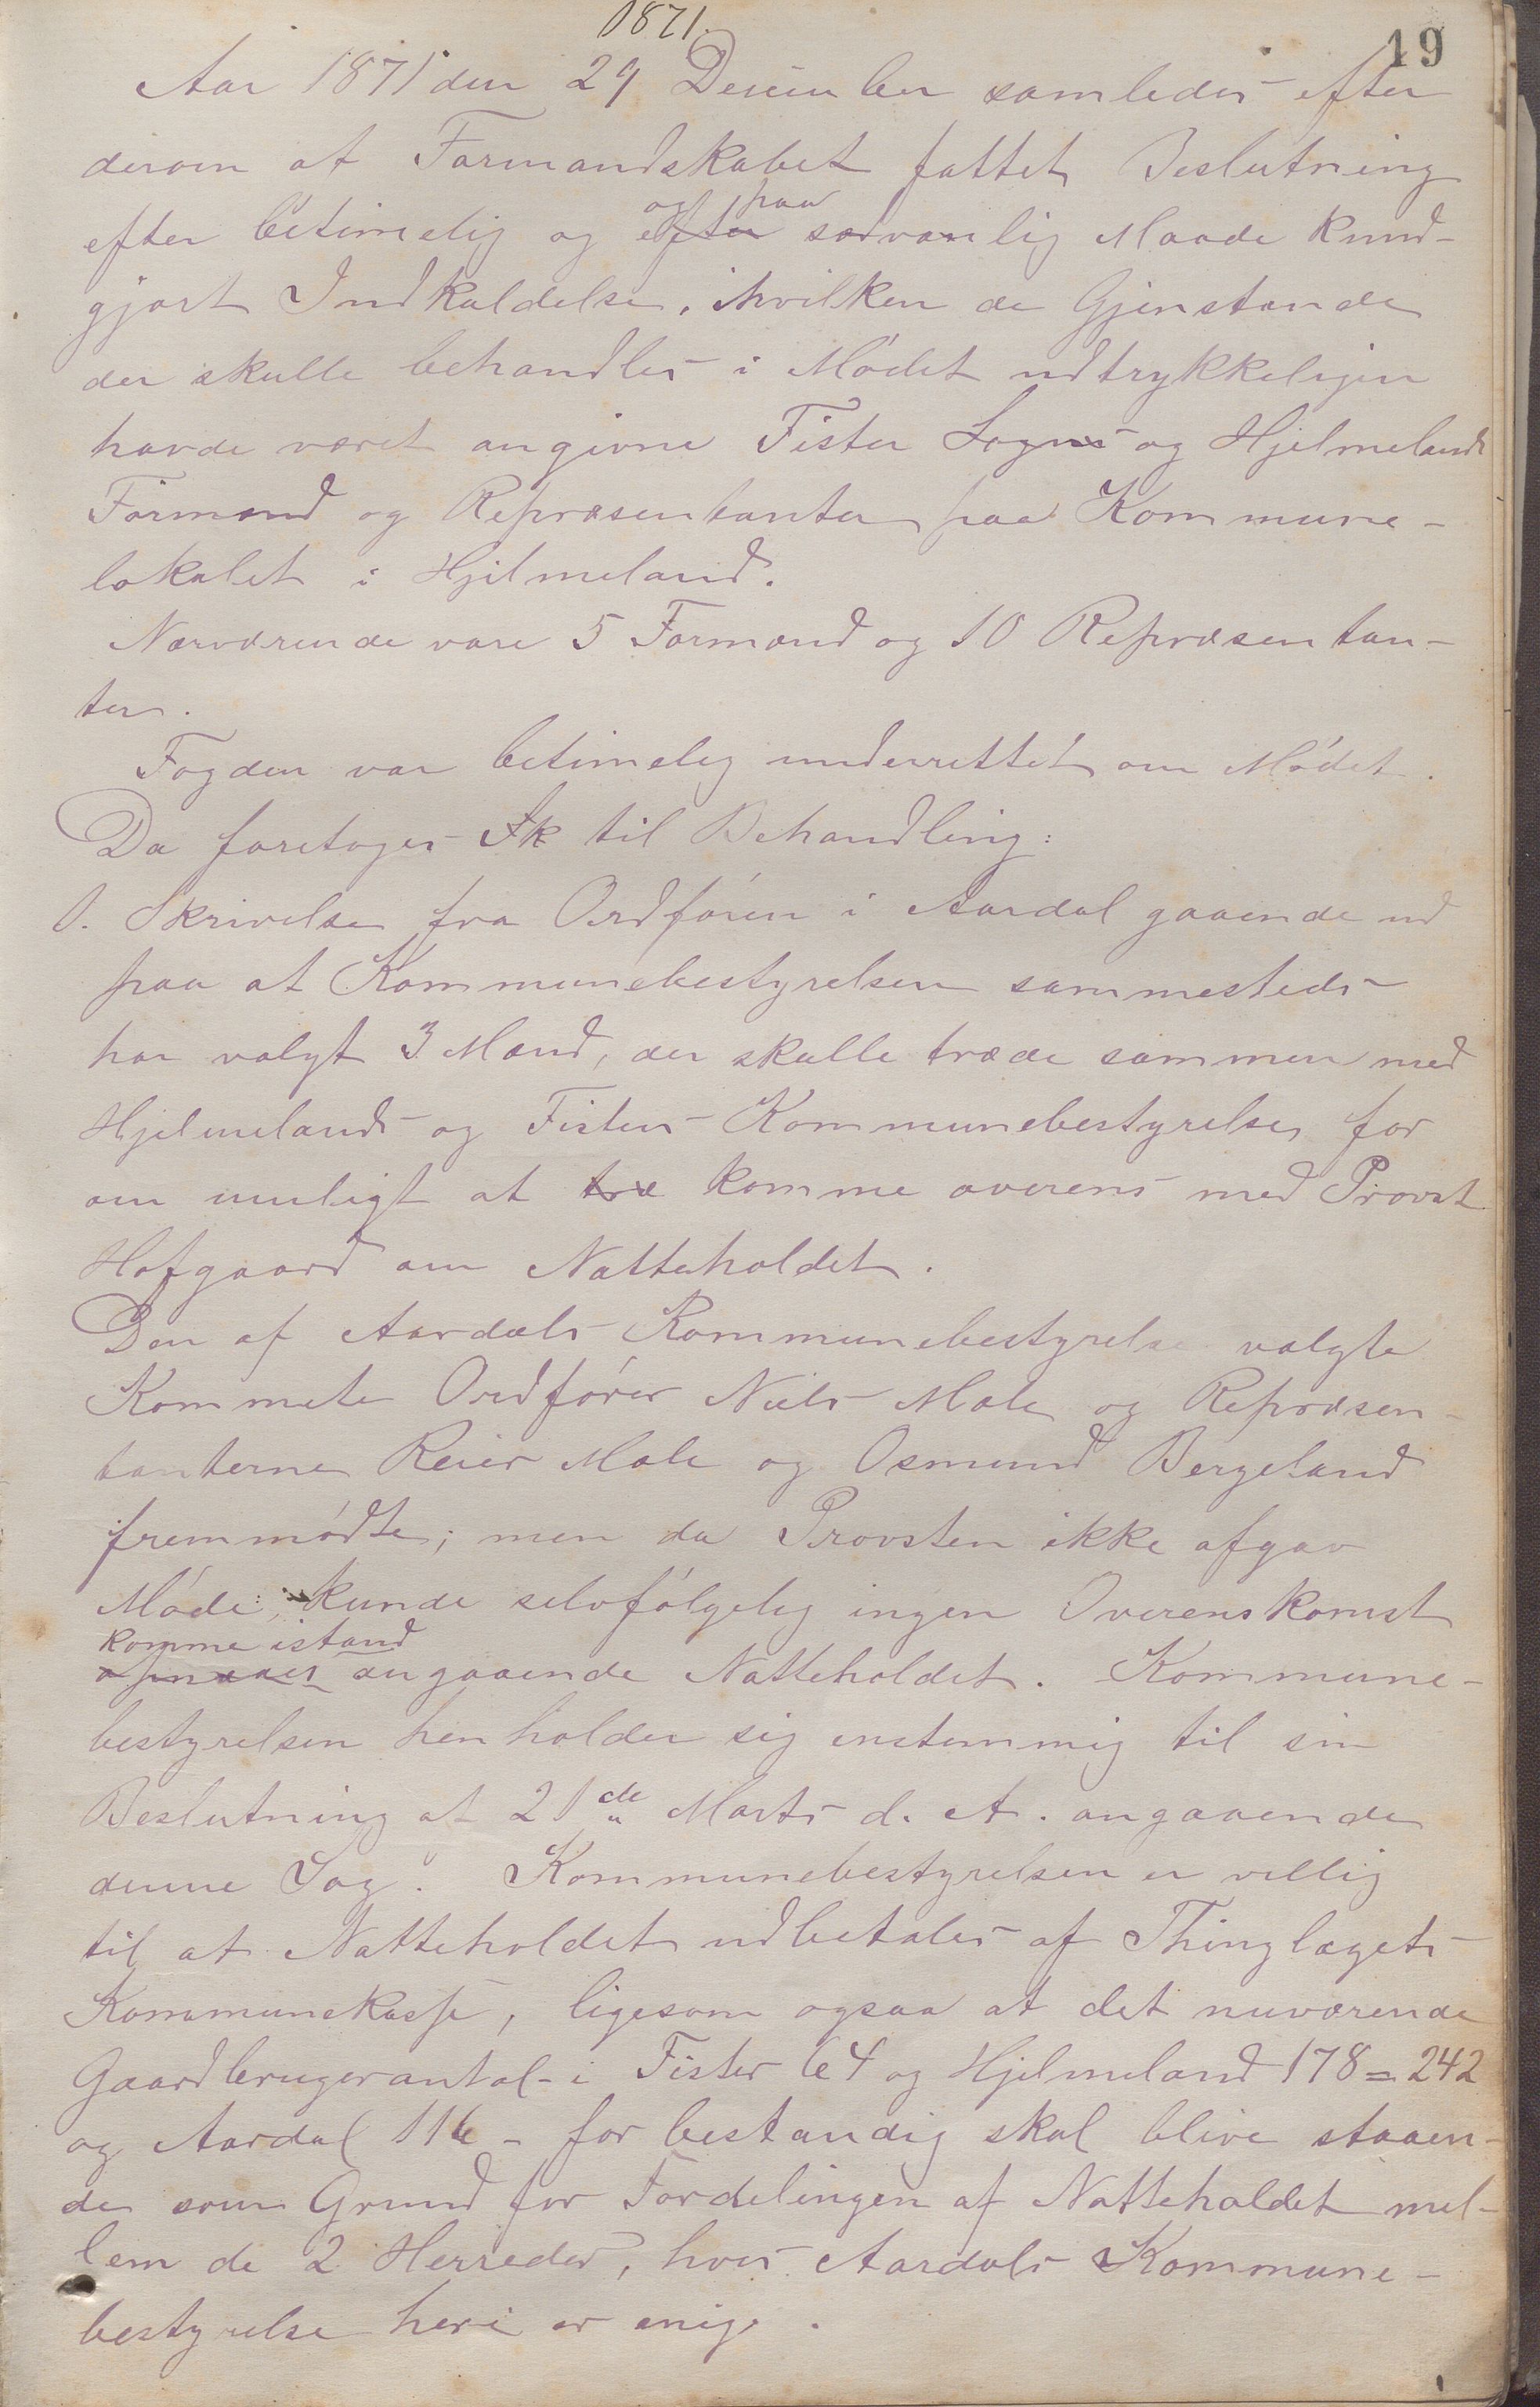 1871.
19
Aar 1871 den 29 December samledes efter
derom at Formandskabet fattet Beslutning
og paa
efter betimelig og efter sædvanlig Maade kund-
gjort Indkaldelse, ihvilken de Gjenstande
der skulle behandles i Mødet udtrykkeligen
havde været angivne Fister Sogns og Hjelmelands
Formænd og Repræsentanter paa Kommune-
lokalet i Hjelmeland.
Nærværende vare 5 Formænd og 10 Repræsentan-
ter.
Fogden var betimelig underrettet om Mødet.
Da foretoges Sk til Behandling:
1. Skrivelse fra Ordføren i Aardal gaaende ud
paa at Kommunebestyrelsen sammesteds
har valgt 3 Mænd, der skulle træde sammen med
Hjelmelands og Fisters Kommunebestyrelse for
om muligt at træ komme overens med Provst
Hofgaard om Natteholdet.
Den af Aardals Kommunebestyrelse valgte
Kommete Ordfører Niels Mæle og Repræsen-
tanterne Reier Mæle og Osmund Bergeland
fremmødte; men da Provsten ikke afgav
Møde, kunde selvfølgelig ingen Overenskomst
komme istand
opnaaes angaaende Natteholdet. Kommune-
bestyrelsen henholder sig enstemmig til sin
Beslutning at 21de Marts d. A. angaaende
denne Sag. Kommunebestyrelsen er villig
til at Natteholdet udbetales af Thinglagets
Kommunekasse, ligesom ogsaa at det nuværende
Gaardbrugerantal i Fister 64 og Hjelmeland 178 = 242
og Aardal 116 - for bestandig skal blive staaen-
de som Grund for Fordelingen af Natteholdet mel-
lem de 2 Herreder, hvis Aardals Kommune-
bestyrelse heri er enig.